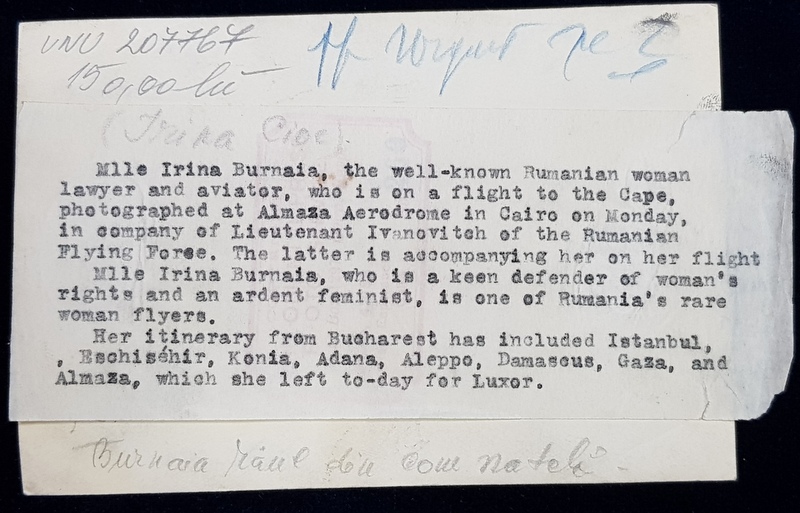 UNU 207767
150,00 lei
(Irina Cioc).
Mlle Irina Burnaia, the well-known Rumanian woman
lawyer and aviator, who is on a flight to the Cape,
photographed at Almaza Aerodrome in Cairo on Monday,
in company of Lieutenant Ivanovitch of the Rumanian
Flying Force. The latter is accompanying her on her flight
Mlle Irina Burnaia, who is a keen defender of woman's
rights and an ardent feminist, is one of Rumania's rare
woman flyers.
Her itinerary from Bucharest has included Istanbul,
, Eschiséhir, Konia, Adana, Aleppo, Damascus, Gaza, and
Almaza, which she left to-day for Luxor.
Burnaia din com natală